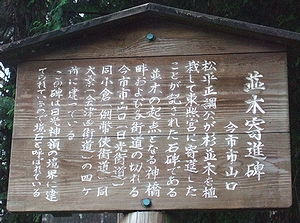 並木寄進碑
今市市山口
松平正綱公が杉並木を植
栽して東照宮に寄進した
ことが記された石碑である
並木の起点となる神橋
畔および各街道の切れる
今市市山口(日光街道)
同小倉(例幣使街道)同
大桑(会津西街道)の四ヶ
所に建っている
この碑は日光神領の境界に建
てられているので境石と呼ばれている